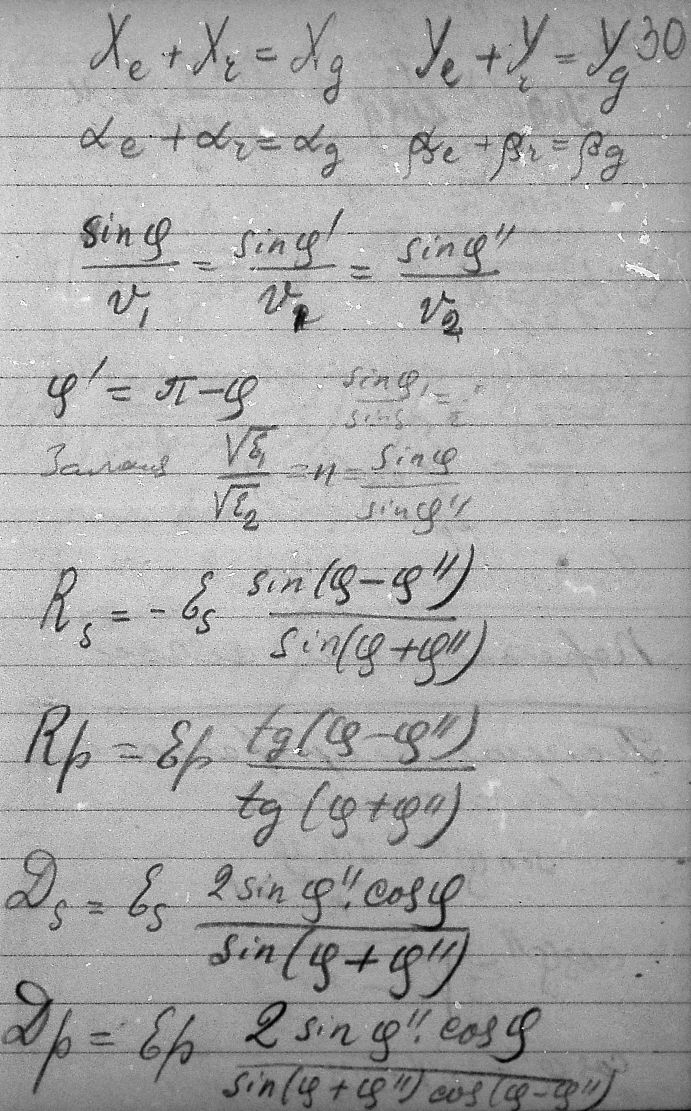 Xe + Xr = Xg Ye + Yr = Yg 30
αe + αr = αg βe + βr = βg
sin φ / v₁ = sin φ' / v₁ = sin φ'' / v₂
φ' = π - φ
√ε₁ / √ε₂ = n = sin φ / sin φ''
Rs = - Es sin(φ - φ'') / sin(φ + φ'')
Rp = Ep tg(φ - φ'') / tg(φ + φ'')
Ds = Es 2 sin φ''. cos φ / sin(φ + φ'')
Dp = Ep 2 sin φ''. cos φ / sin(φ + φ'') cos(φ - φ'')